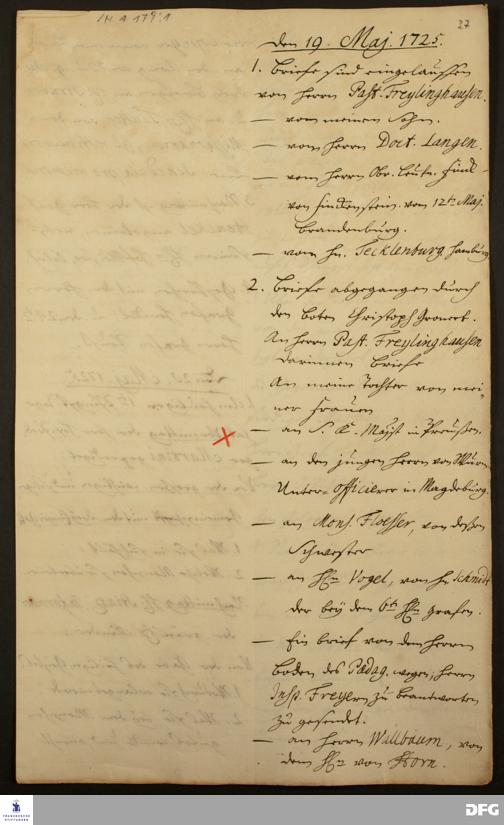 27
Den 19. Maj. 1725.
1. Briefe sind eingelauffen
von Herrn Past. Freylinghausen.
— von meinem Sohn.
— vom Herrn Doct. Langen.
— vom Herrn Obr. Leutn.
von Finckenstein. vom 12t. Maj.
Brandenburg.
— vom Hn. Tecklenburg Hamburg
2. Briefe abgegangen durch
den boten Christoph
An Herrn Past. Freylinghausen
darinnen Briefe
An meine Tochter von mei-
ner Frauen
— an S. K. Majst in Preußen.
— an den jungen Herrn von Wurm
Unter-Officierer in Magdeburg.
— an Mons. Floesser, von deßen
Schwester
— an Vogel, von Hn Schmidt
der bey dem Grafen.
— Ein brief von dem Herrn
boden des Pædag. wegen, Herrn
Insp. Freyern zu beantworten
zu gesendet.
— an Herrn Wallbaum, von
dem von Horn.
FRANCKESCHE
STIFTUNGEN
DFG